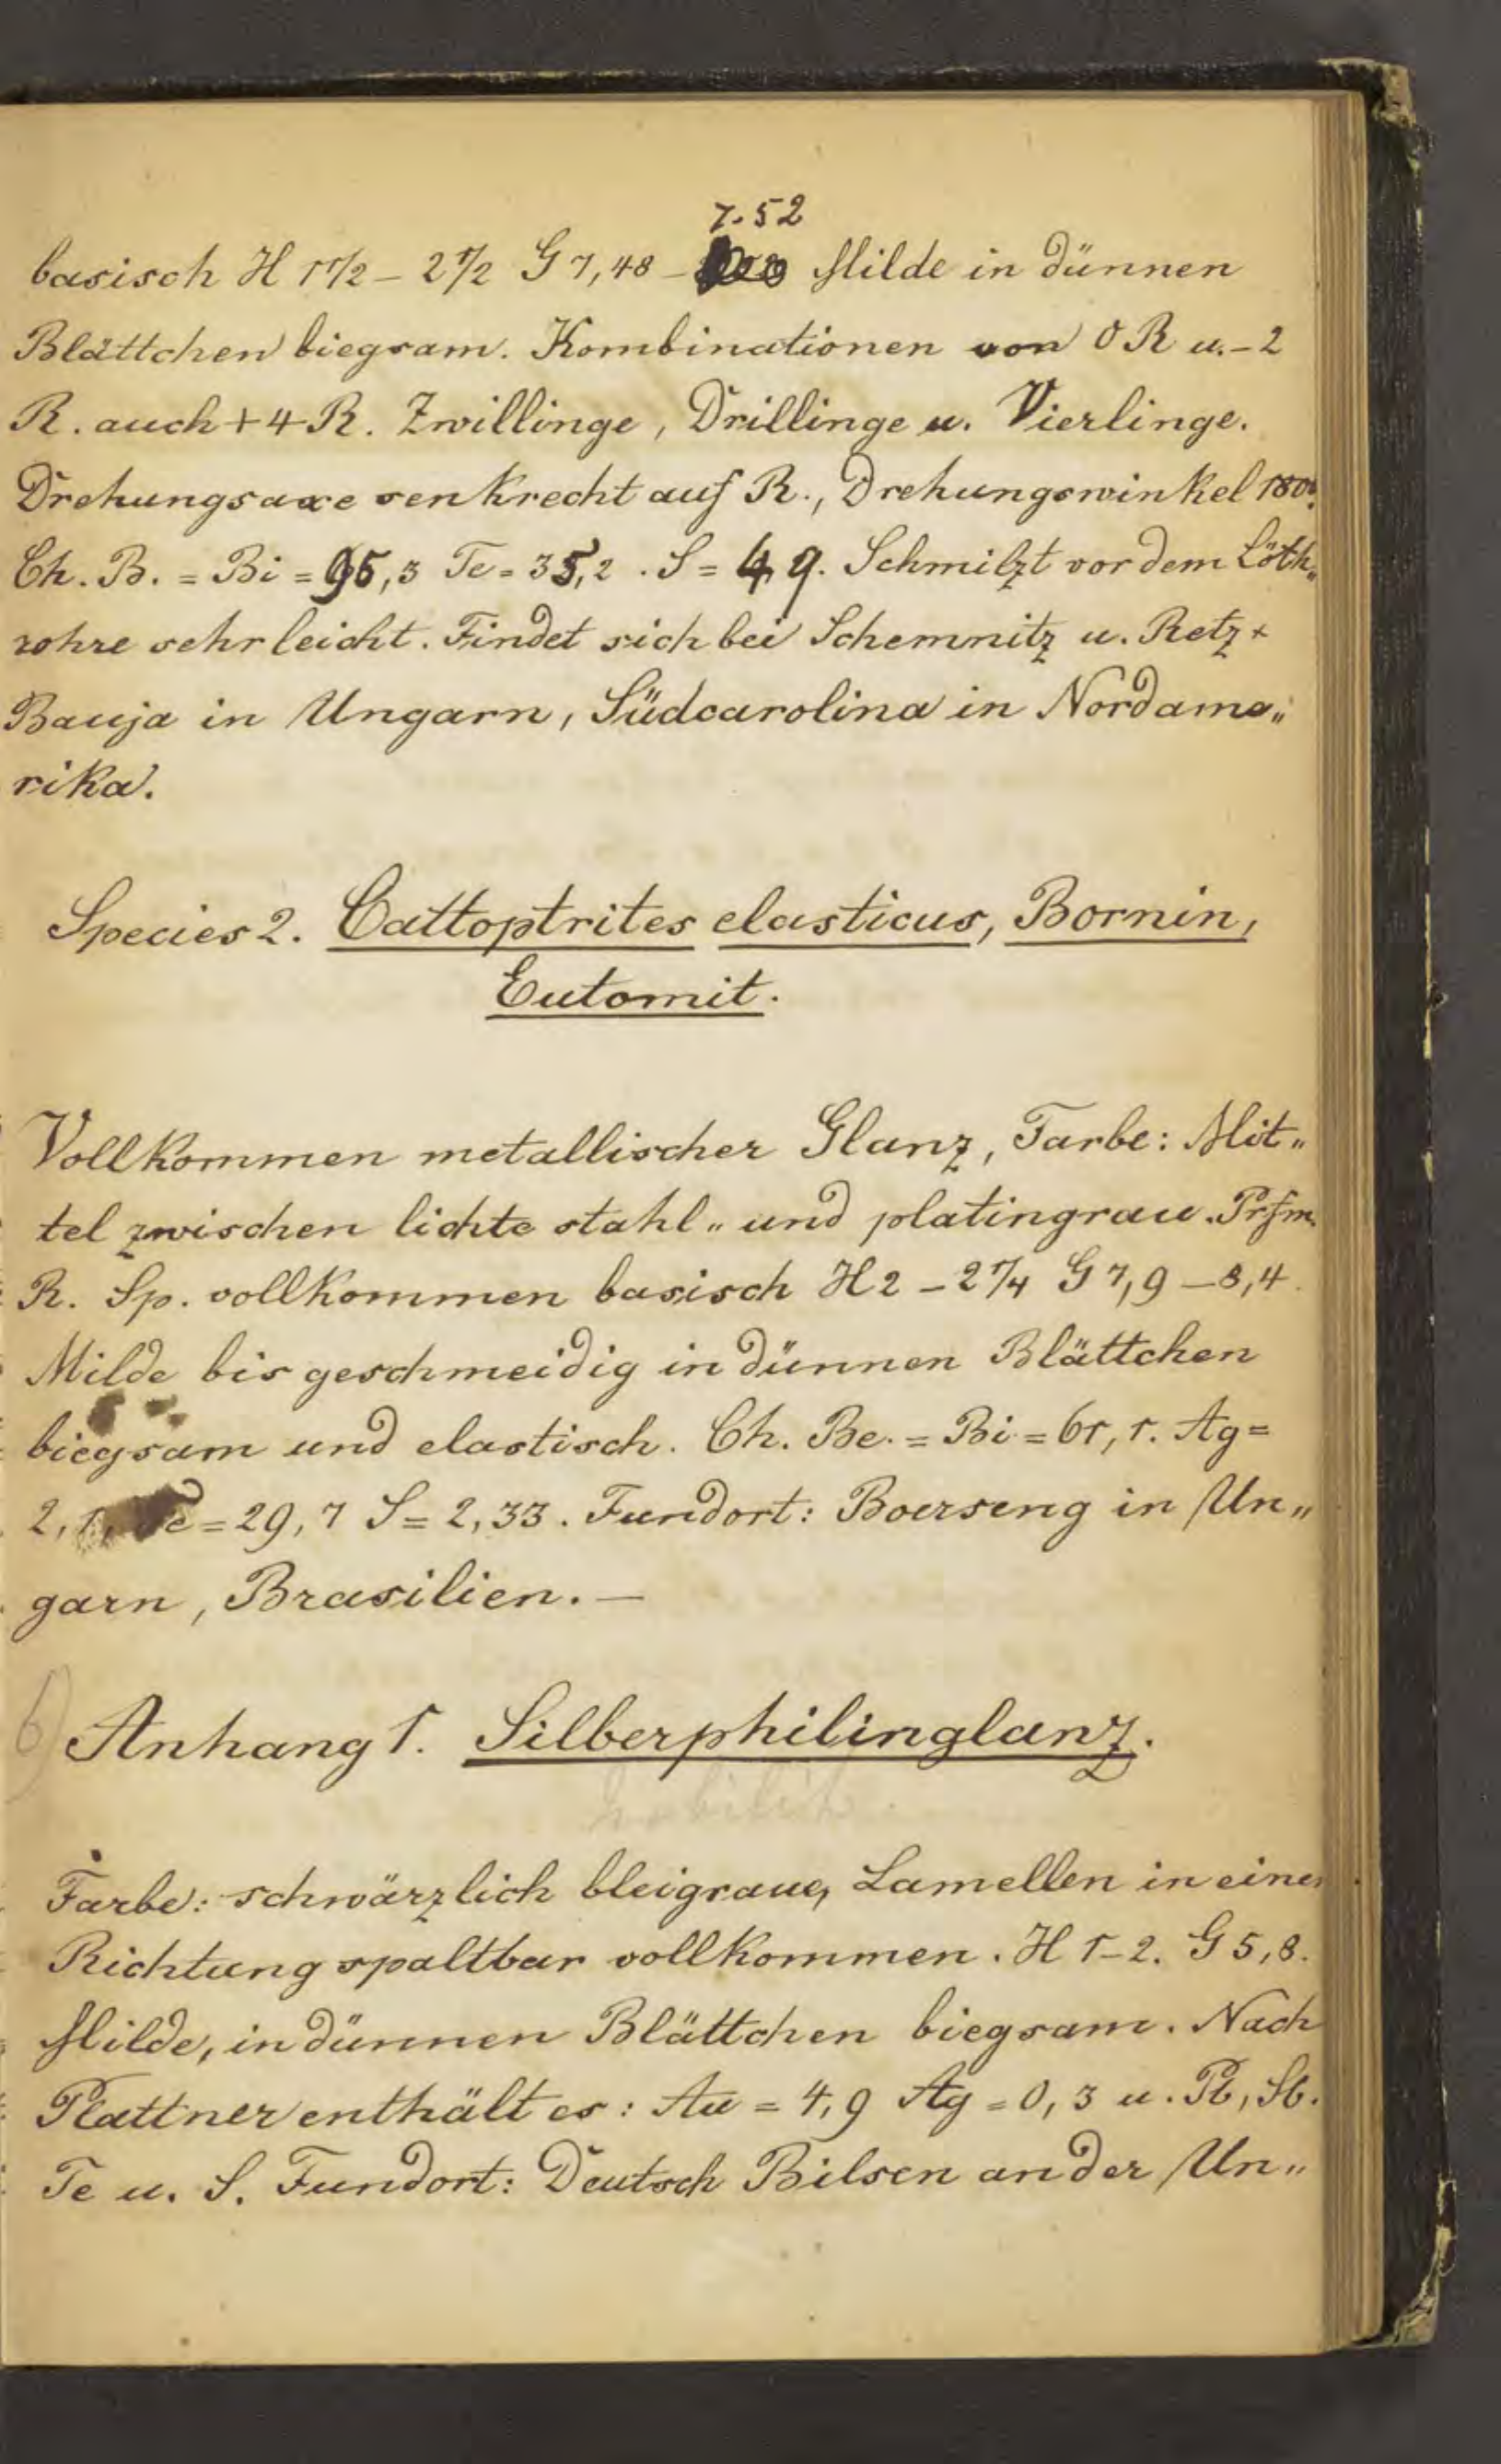 7.52
basisch H 1 1/2 – 2 1/2 G 7,48 – Milde in dünnen
Blättchen biegsam. Kombinationen von 0 R u. – 2
R. auch + 4 R. Zwillinge, Drillinge u. Vierlinge.
Drehungsaxe senkrecht auf R., Drehungswinkel 180°.
Ch. B. = Bi = 95,3 Te = 35,2 . S = 4,9. Schmilzt vor dem Löth„
rohre sehr leicht. Findet sich bei Schemnitz u. Retz +
Bauja in Ungarn, Südcarolina in Nordame„
rika.
Species 2. Cattoptrites elasticus, Bornin,
Eutomit.
Vollkommen metallischer Glanz, Farbe: Mit„
tel zwischen lichte stahl„ und platingrau. Prfm.
R. Sp. vollkommen basisch H 2 – 2 1/4 G 7,9 – 8,4.
Milde bis geschmeidig in dünnen Blättchen
biegsam und elastisch. Ch. Be. = Bi = 61,1. Ag =
2,1, Te = 29,7 S = 2,33. Fundort: Boerseng in Un„
garn, Brasilien. —
6) Anhang 1. Silberphilinglanz.
Farbe: schwärzlich bleigraue, Lamellen in einer
Richtung spaltbar vollkommen. H 1–2. G 5,8.
Milde, in dünnen Blättchen biegsam. Nach
Plattner enthält es: Au = 4,9 Ag = 0,3 u. Pb, Sb.
Te u. S. Fundort: Deutsch Pilsen an der Un„